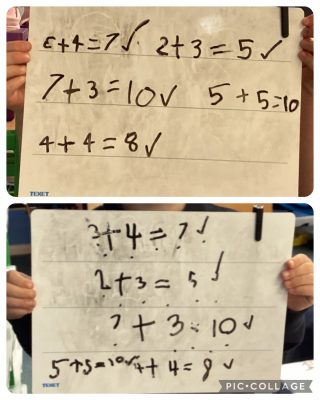 3+4=7✓ 2+3=5✓
7+3=10✓ 5+5=10
4+4=8✓
TEXET
3+4=7✓
2+3=5✓
7+3=10✓
5+5=10✓ 4+4=8✓
TEXET
PIC•COLLAGE